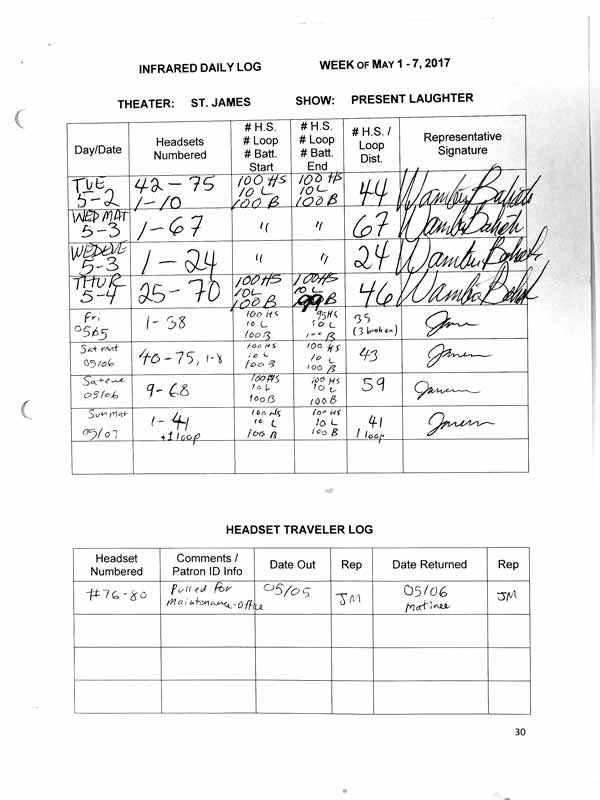 INFRARED DAILY LOG WEEK OF MAY 1 - 7, 2017
THEATER: ST. JAMES SHOW: PRESENT LAUGHTER
Day/Date Headsets Numbered # H.S. # Loop # Batt. Start # H.S. # Loop # Batt. End # H.S. / Loop Dist. Representative Signature
TUE 5-2 42-75 1-10 100 HS 10 L 100 B 100 HS 10 L 100 B 44
WED MAT 5-3 1-67 " " 67
WED EVE 5-3 1-24 " " 24
THUR 5-4 25-70 100HS 10L 100 B 100HS 10L 99 B 46
Fri 0505 1-38 100 HS 10 L 100B 95HS 10 L 100 B (3 broken)
Sat mat 05/06 40-75, 1-8 100 HS 10 L 100 B 100 HS 10 L 100 B 43
Sat eve 05/06 9-68 100HS 10 L 100B 100 HS 10 L 100B 59
Sun mat 05/07 1-41 +1 loop 100 HS 10 L 100 B 100 HS 10 L 100 B 41 1 loop
HEADSET TRAVELER LOG
Headset Numbered Comments / Patron ID Info Date Out Rep Date Returned Rep
#76-80 Pulled for Maintenance-Office 05/05 JM 05/06 Matinee JM
30